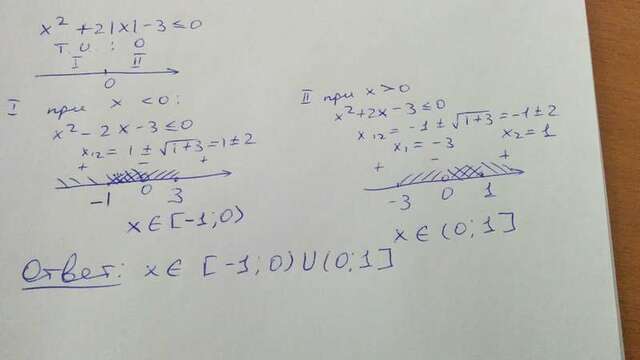 x² + 2|x| - 3 ≤ 0
Т.и. : 0
I II
0
I при x < 0:
x² - 2x - 3 ≤ 0
x₁,₂ = 1 ± √1+3 = 1 ± 2
+ - +
-1 0 3
x ∈ [-1; 0)
II при x > 0
x² + 2x - 3 ≤ 0
x₁,₂ = -1 ± √1+3 = -1 ± 2
x₁ = -3 x₂ = 1
+ - +
-3 0 1
x ∈ (0; 1]
Ответ: x ∈ [-1; 0) U (0; 1]